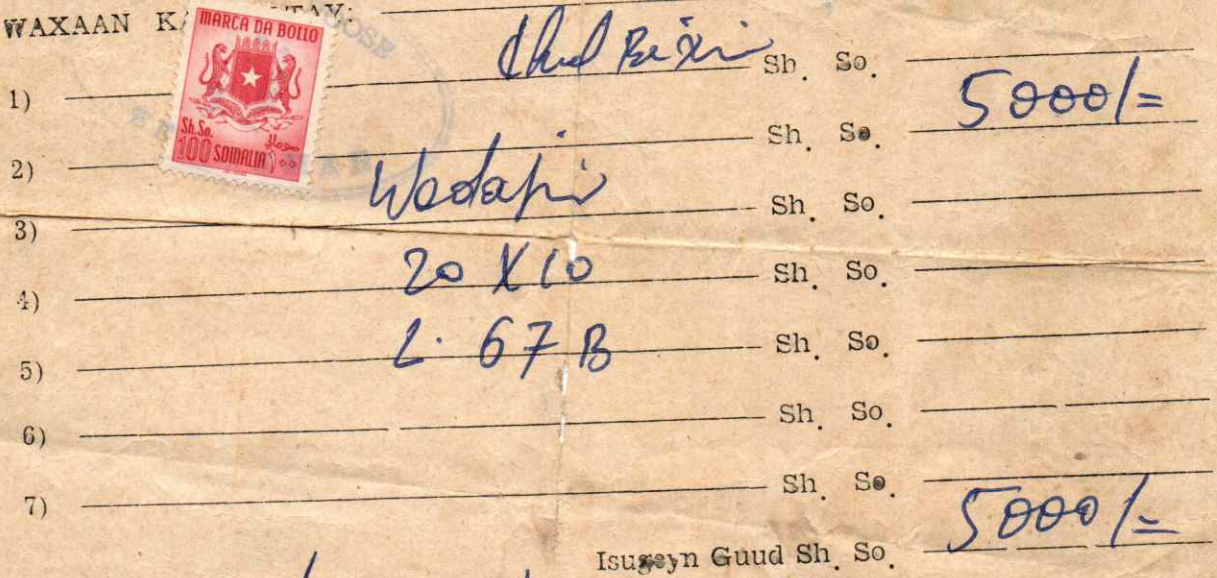 WAXAAN K TAY:
MARCA DA BOLLO
Sh. So. صومالي
100 SOMALIA ١٠٠
1) Bixi Sh. So. 5000/=
2) Sh. So.
3) Wadajir Sh. So.
4) 20 X 10 Sh. So.
5) L. 67 B Sh. So.
6) Sh. So.
7) Sh. So.
Isugeyn Guud Sh. So. 5000/=